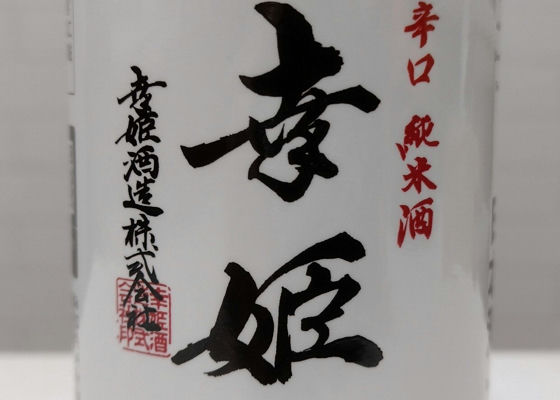 辛口 純米酒
幸姫
幸姫酒造株式会社